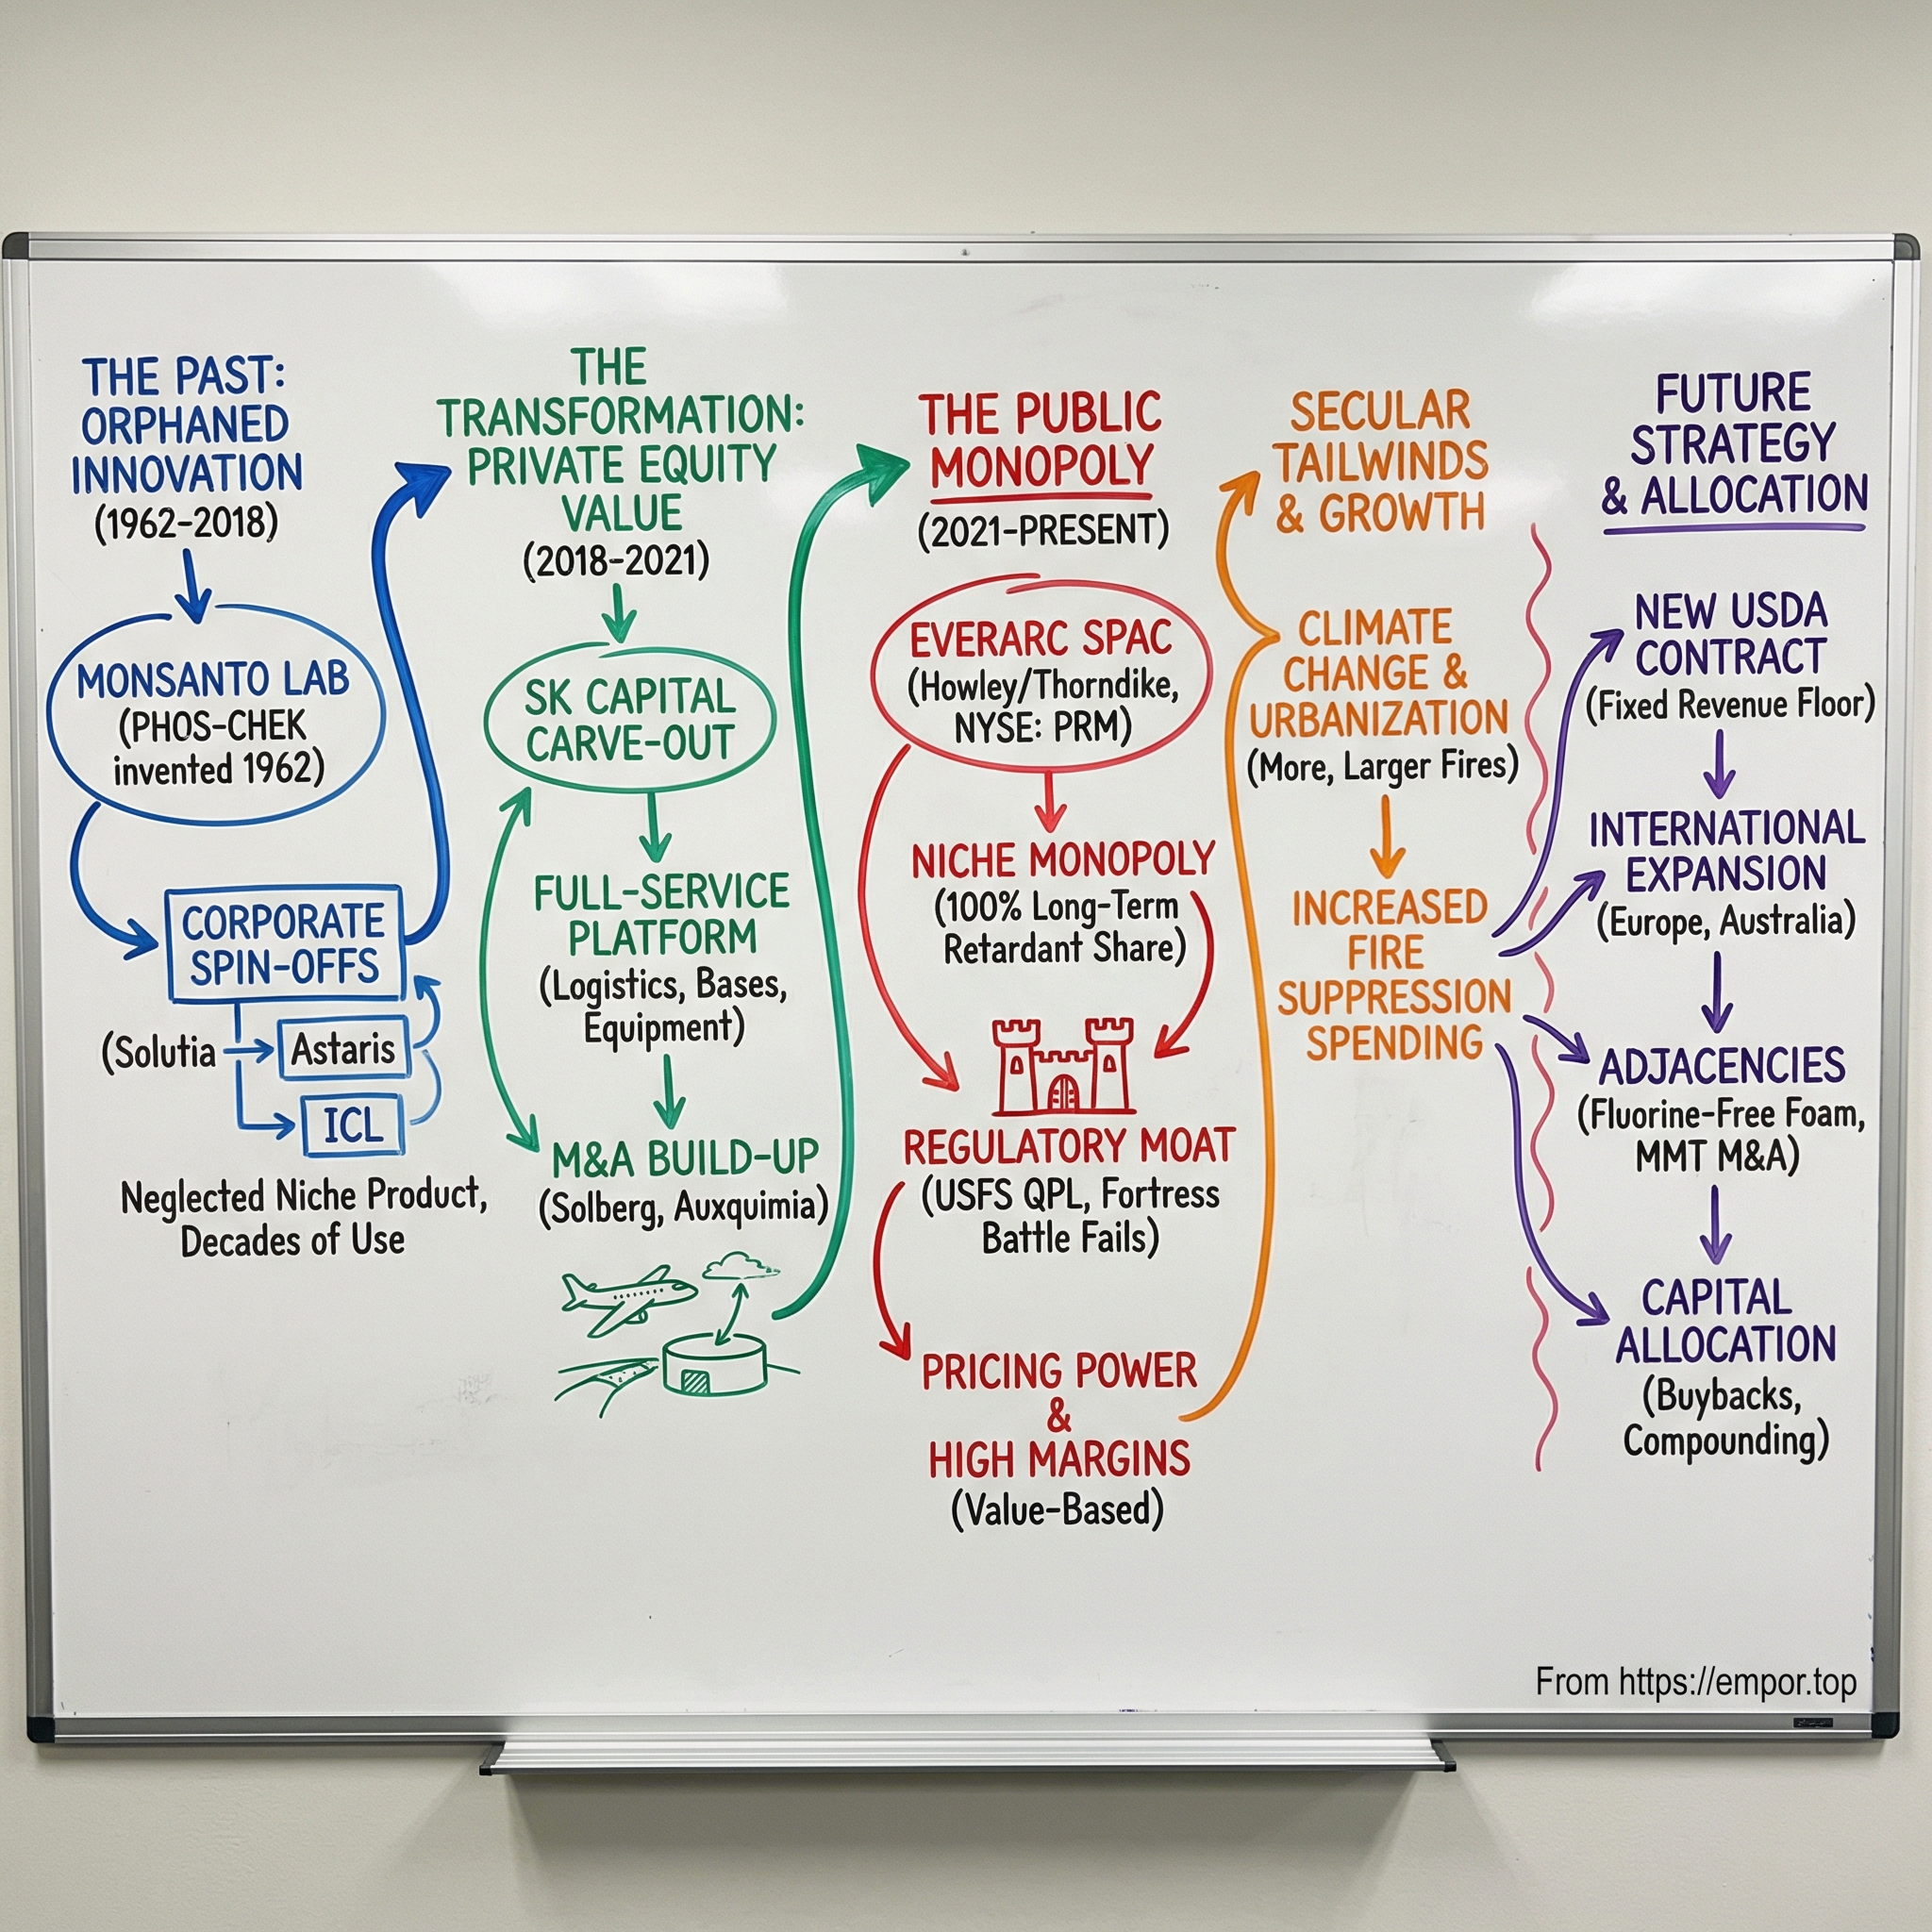 THE PAST:
ORPHANED
INNOVATION
(1962-2018)
MONSANTO LAB
(PHOS-CHEK
invented 1962)
CORPORATE
SPIN-OFFS
(Solutia
Astaris
ICL
Neglected Niche Product,
Decades of Use
THE
TRANSFORMATION:
PRIVATE EQUITY
VALUE
(2018-2021)
SK CAPITAL
CARVE-OUT
FULL-SERVICE
PLATFORM
(Logistics, Bases,
Equipment)
M&A BUILD-UP
(Solberg, Auxquimia)
THE PUBLIC
MONOPOLY
(2021-PRESENT)
EVERARC SPAC
(Howley/Thorndike,
NYSE: PRM)
NICHE MONOPOLY
(100% Long-Term
Retardant Share)
REGULATORY MOAT
(USFS QPL, Fortress
Battle Fails)
PRICING POWER
&
HIGH MARGINS
(Value-Based)
SECULAR
TAILWINDS
& GROWTH
CLIMATE
CHANGE &
URBANIZATION
(More, Larger Fires)
INCREASED
FIRE
SUPPRESSION
SPENDING
FUTURE
STRATEGY
& ALLOCATION
NEW USDA
CONTRACT
(Fixed Revenue Floor)
INTERNATIONAL
EXPANSION
(Europe, Australia)
ADJACENCIES
(Fluorine-Free Foam,
MMT M&A)
CAPITAL
ALLOCATION
(Buybacks,
Compounding)
From https://empor.top